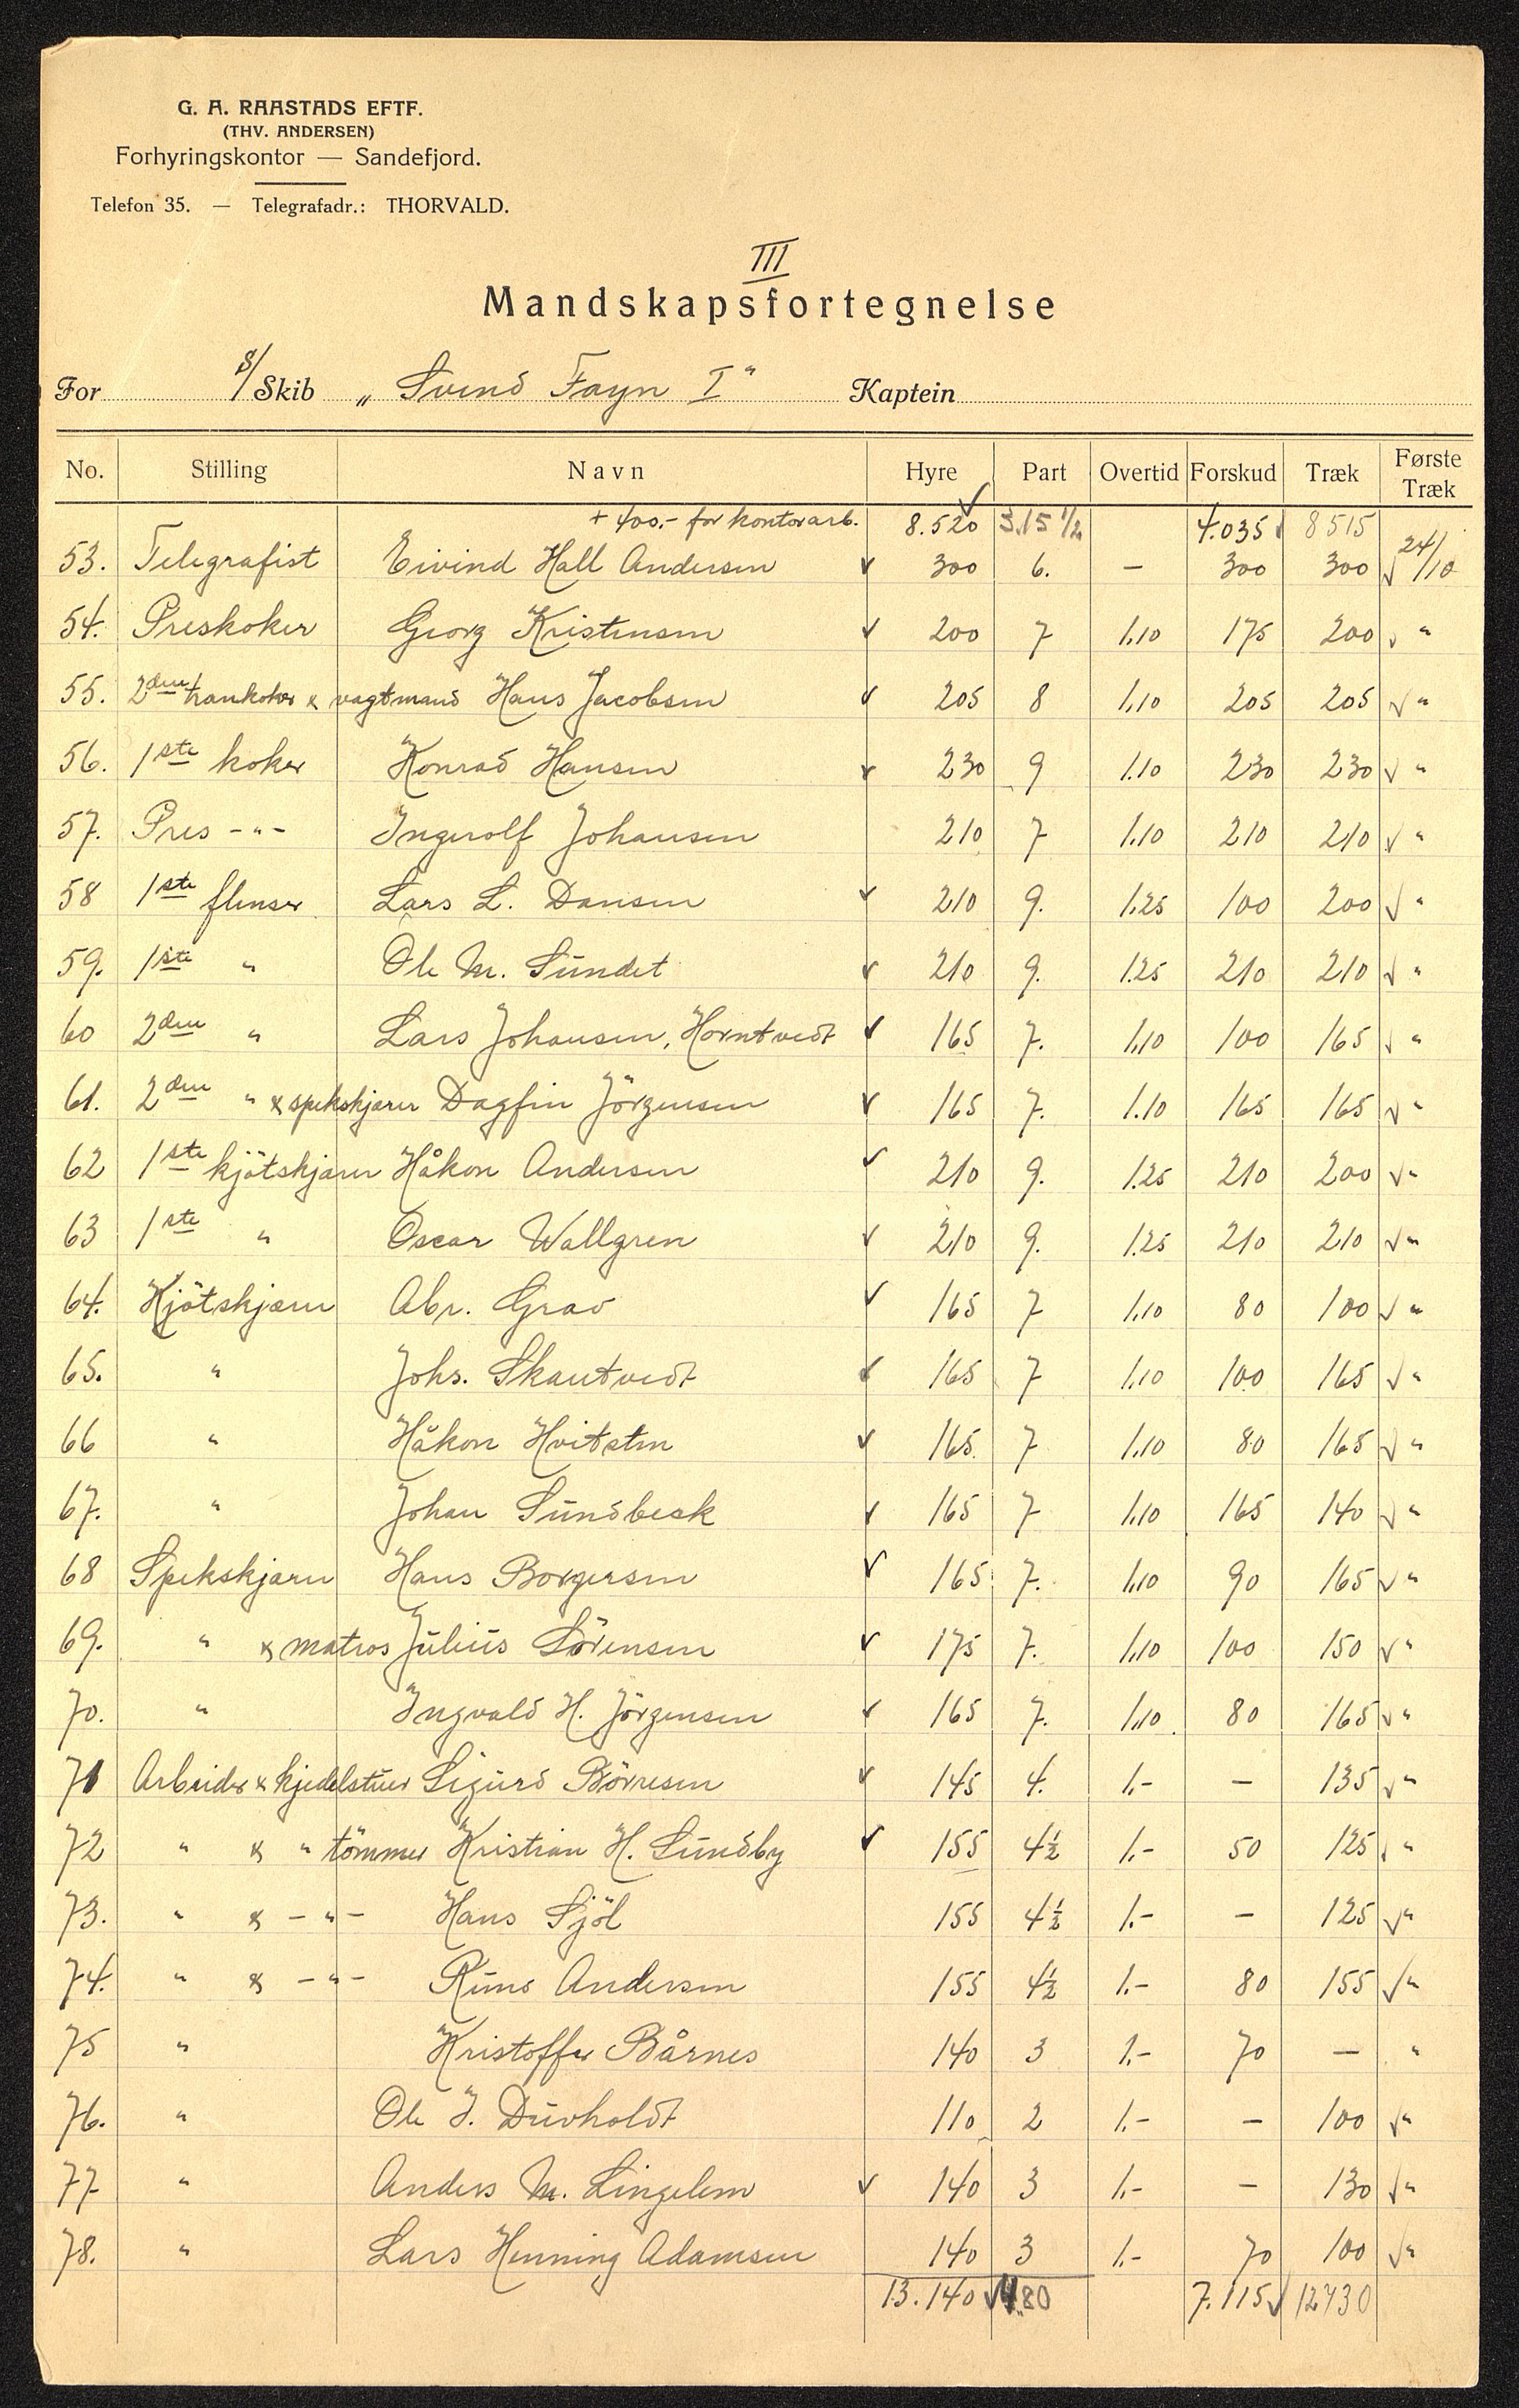 G. A. RAASTADS EFTF.
(THV. ANDERSEN)
Forhyringskontor — Sandefjord.
Telefon 35. — Telegrafadr.: THORVALD.
III
Mandskapsfortegnelse
For S/Skib „Svend Foyn I" Kaptein
No. Stilling Navn Hyre Part Overtid Forskud Træk Første Træk
+ 400.- for kontorarb. 8.520 3.15 1/2 4.035 8515
53. Telegrafist Eivind Hall Andersen 300 6. — 300 300 24/10
54. Preskoker Georg Kristensen 200 7 1.10 175 200 "
55. 2den trankoker & vagtmand Hans Jacobsen 205 8 1.10 205 205 "
56. 1ste koker Konrad Hansen 230 9 1.10 230 230 "
57. Pres -"- Ingerolf Johansen 210 7 1.10 210 210 "
58 1ste flenser Lars L. Dansen 210 9. 1.25 100 200 "
59. 1ste " Ole M. Sundet 210 9. 1.25 210 210 "
60 2den " Lars Johansen, Horntvedt 165 7. 1.10 100 165 "
61. 2den " & spekskjærer Dagfin Jörgensen 165 7. 1.10 165 165 "
62 1ste kjötskjærer Håkon Andersen 210 9. 1.25 210 200 "
63 1ste " Oscar Wallgren 210 9. 1.25 210 210 "
64. Kjötskjærer Abr. Grav 165 7 1.10 80 100 "
65. " Johs. Skautvedt 165 7 1.10 100 165 "
66 " Håkon Hvitsten 165. 7 1.10 80 165 "
67. " Johan Sundbeck 165 7 1.10 165 140 "
68 Spekskjærer Hans Borgersen 165 7. 1.10 90 165 "
69. " & matros Julius Sörensen 175 7. 1.10 100 150 "
70. " Ingvald H. Jörgensen 165 7. 1.10 80 165 "
71 Arbeider & kjedelstuer Sigurd Börresen 145 4. 1.- — 135 "
72 " & " tömmer Kristian H. Sundby 155 4½ 1.- 50 125 "
73. " & -"- Hans Sjöl 155 4½ 1.- — 125 "
74. " & -"- Rund Andersen 155 4½ 1.- 80 155 "
75 " Kristoffer Bårnes 140 3 1.- 70 — "
76. " Ole J. Duvholdt 110 2 1.- — 100 "
77 " Anders M. Lingelem 140 3 1.- — 130 "
78. " Lars Henning Adamsen 140 3 1.- 70 100 "
13.140 4.80 7.115 12430